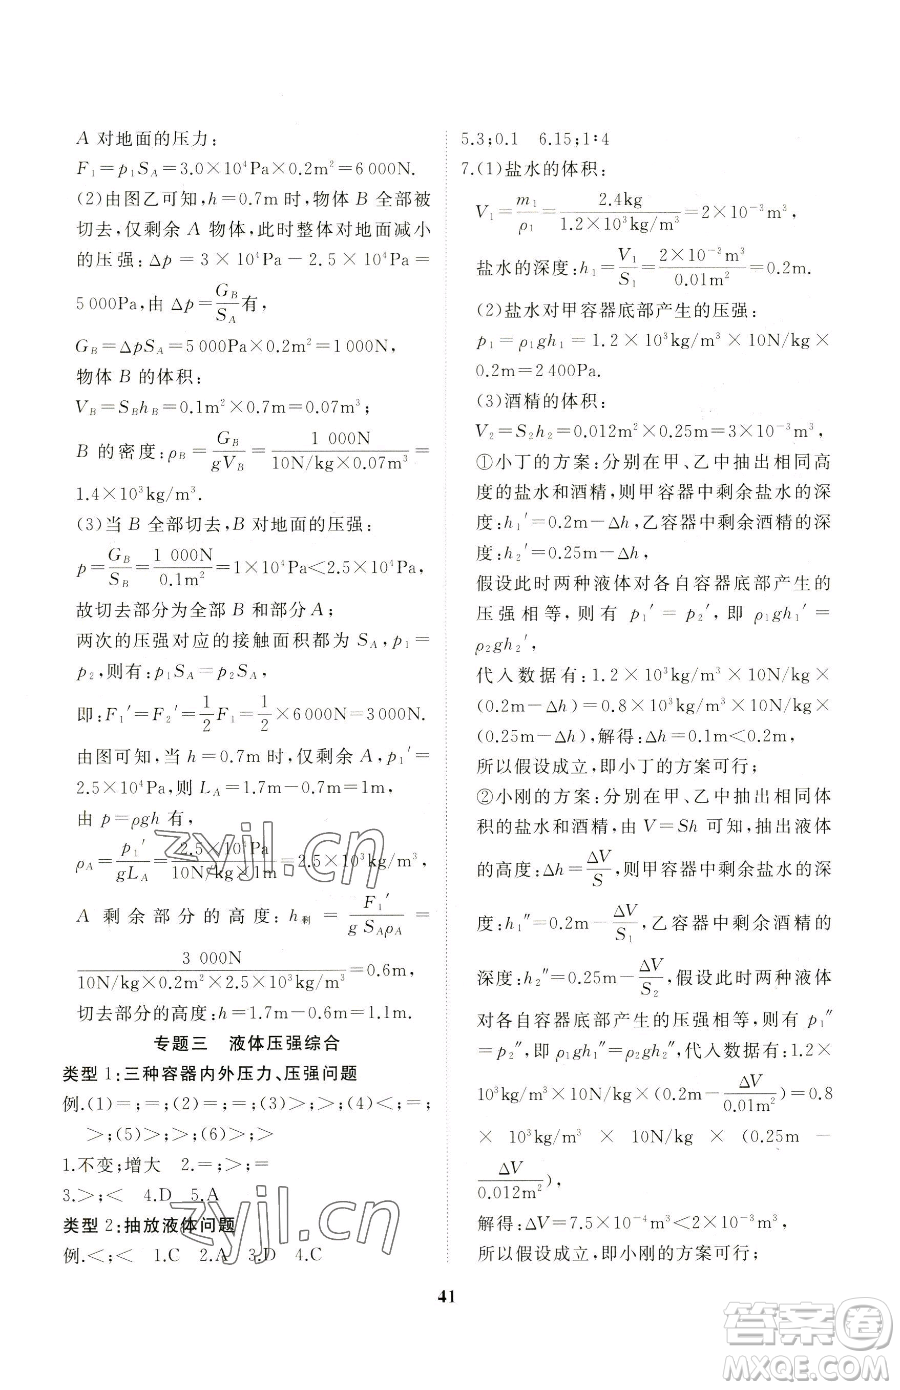 A 对地面的压力:
F₁=p₁S_A=3.0×10⁴Pa×0.2m²=6 000N.
(2)由图乙可知,h=0.7m 时,物体 B 全部被
切去,仅剩余 A 物体,此时整体对地面减小
的压强:Δp=3×10⁴Pa-2.5×10⁴Pa=
5 000Pa,由 Δp=G_B/S_A有,
G_B=ΔpS_A=5 000Pa×0.2m²=1 000N,
物体 B 的体积:
V_B=S_Bh_B=0.1m²×0.7m=0.07m³;
B 的密度:ρ_B=G_B/gV_B=1 000N/10N/kg×0.07m³=
1.4×10³kg/m³.
(3)当 B 全部切去,B 对地面的压强:
p=G_B/S_B=1 000N/0.1m²=1×10⁴Pa<2.5×10⁴Pa,
故切去部分为全部 B 和部分 A;
两次的压强对应的接触面积都为 S_A,p₁=
p₂,则有:p₁S_A=p₂S_A,
即:F₁′=F₂′=1/2F₁=1/2×6 000N=3 000N.
由图可知,当 h=0.7m 时,仅剩余 A,p₁′=
2.5×10⁴Pa,则 L_A=1.7m-0.7m=1m,
由 p=ρgh 有,
ρ_A=p₁′/gL_A=2.5×10⁴Pa/10N/kg×1m=2.5×10³kg/m³,
A 剩余部分的高度:h剩=F₁′/g S_Aρ_A=
3 000N/10N/kg×0.2m²×2.5×10³kg/m³=0.6m,
切去部分的高度:h=1.7m-0.6m=1.1m.
专题三 液体压强综合
类型 1:三种容器内外压力、压强问题
例.(1)=;=;(2)=;=;(3)>;>;(4)<;=;
>;(5)>;>;(6)>;>
1.不变;增大 2.=;>;=
3.>;< 4.D 5.A
类型 2:抽放液体问题
例.<;< 1.C 2.A 3.D 4.C
5.3;0.1 6.15;1∶4
7.(1)盐水的体积:
V₁=m₁/ρ₁=2.4kg/1.2×10³kg/m³=2×10⁻³m³,
盐水的深度:h₁=V₁/S₁=2×10⁻³m³/0.01m²=0.2m.
(2)盐水对甲容器底部产生的压强:
p₁=ρ₁gh₁=1.2×10³kg/m³×10N/kg×
0.2m=2 400Pa.
(3)酒精的体积:
V₂=S₂h₂=0.012m²×0.25m=3×10⁻³m³,
①小丁的方案:分别在甲、乙中抽出相同高
度的盐水和酒精,则甲容器中剩余盐水的深
度:h₁′=0.2m-Δh,乙容器中剩余酒精的深
度:h₂′=0.25m-Δh,
假设此时两种液体对各自容器底部产生的
压强相等,则有 p₁′=p₂′,即 ρ₁gh₁′=
ρ₂gh₂′,
代入数据有:1.2×10³kg/m³×10N/kg×
(0.2m-Δh)=0.8×10³kg/m³×10N/kg×
(0.25m-Δh),解得:Δh=0.1m<0.2m,
所以假设成立,即小丁的方案可行;
②小刚的方案:分别在甲、乙中抽出相同体
积的盐水和酒精,由 V=Sh 可知,抽出液体
的高度:Δh=ΔV/S,则甲容器中剩余盐水的深
度:h₁″=0.2m-ΔV/S₁,乙容器中剩余酒精的
深度:h₂″=0.25m-ΔV/S₂,假设此时两种液体
对各自容器底部产生的压强相等,则有 p₁″
=p₂″,即 ρ₁gh₁″=ρ₂gh₂″,代入数据有:1.2×
10³kg/m³×10N/kg×(0.2m-ΔV/0.01m²)=0.8
×10³kg/m³×10N/kg×(0.25m-
ΔV/0.012m²),
解得:ΔV=7.5×10⁻⁴m³<2×10⁻³m³,
所以假设成立,即小刚的方案可行;
41
zyjl.cn
zyjl.cn
答案圈
MXQE.COM